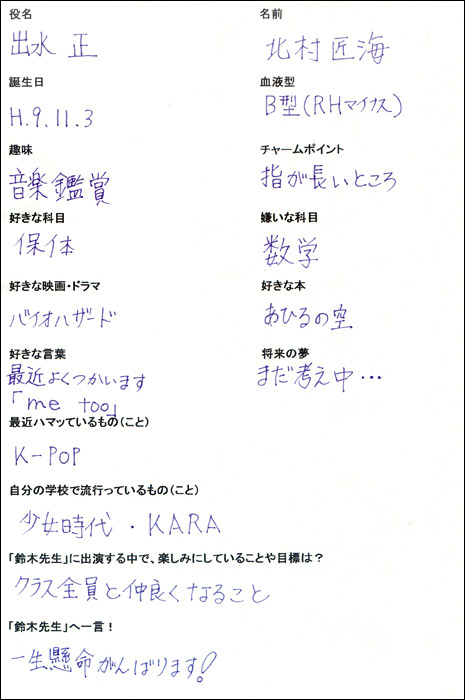 役名 名前
出水 正 北村匠海
誕生日 血液型
H.9.11.3 B型(RHマイナス)
趣味 チャームポイント
音楽鑑賞 指が長いところ
好きな科目 嫌いな科目
保体 数学
好きな映画・ドラマ 好きな本
バイオハザード あひるの空
好きな言葉 将来の夢
最近よくつかいます まだ考え中…
「me too」
最近ハマッているもの(こと)
K-POP
自分の学校で流行っているもの(こと)
少女時代・KARA
「鈴木先生」に出演する中で、楽しみにしていることや目標は?
クラス全員と仲良くなること
「鈴木先生」へ一言!
一生懸命がんばります!